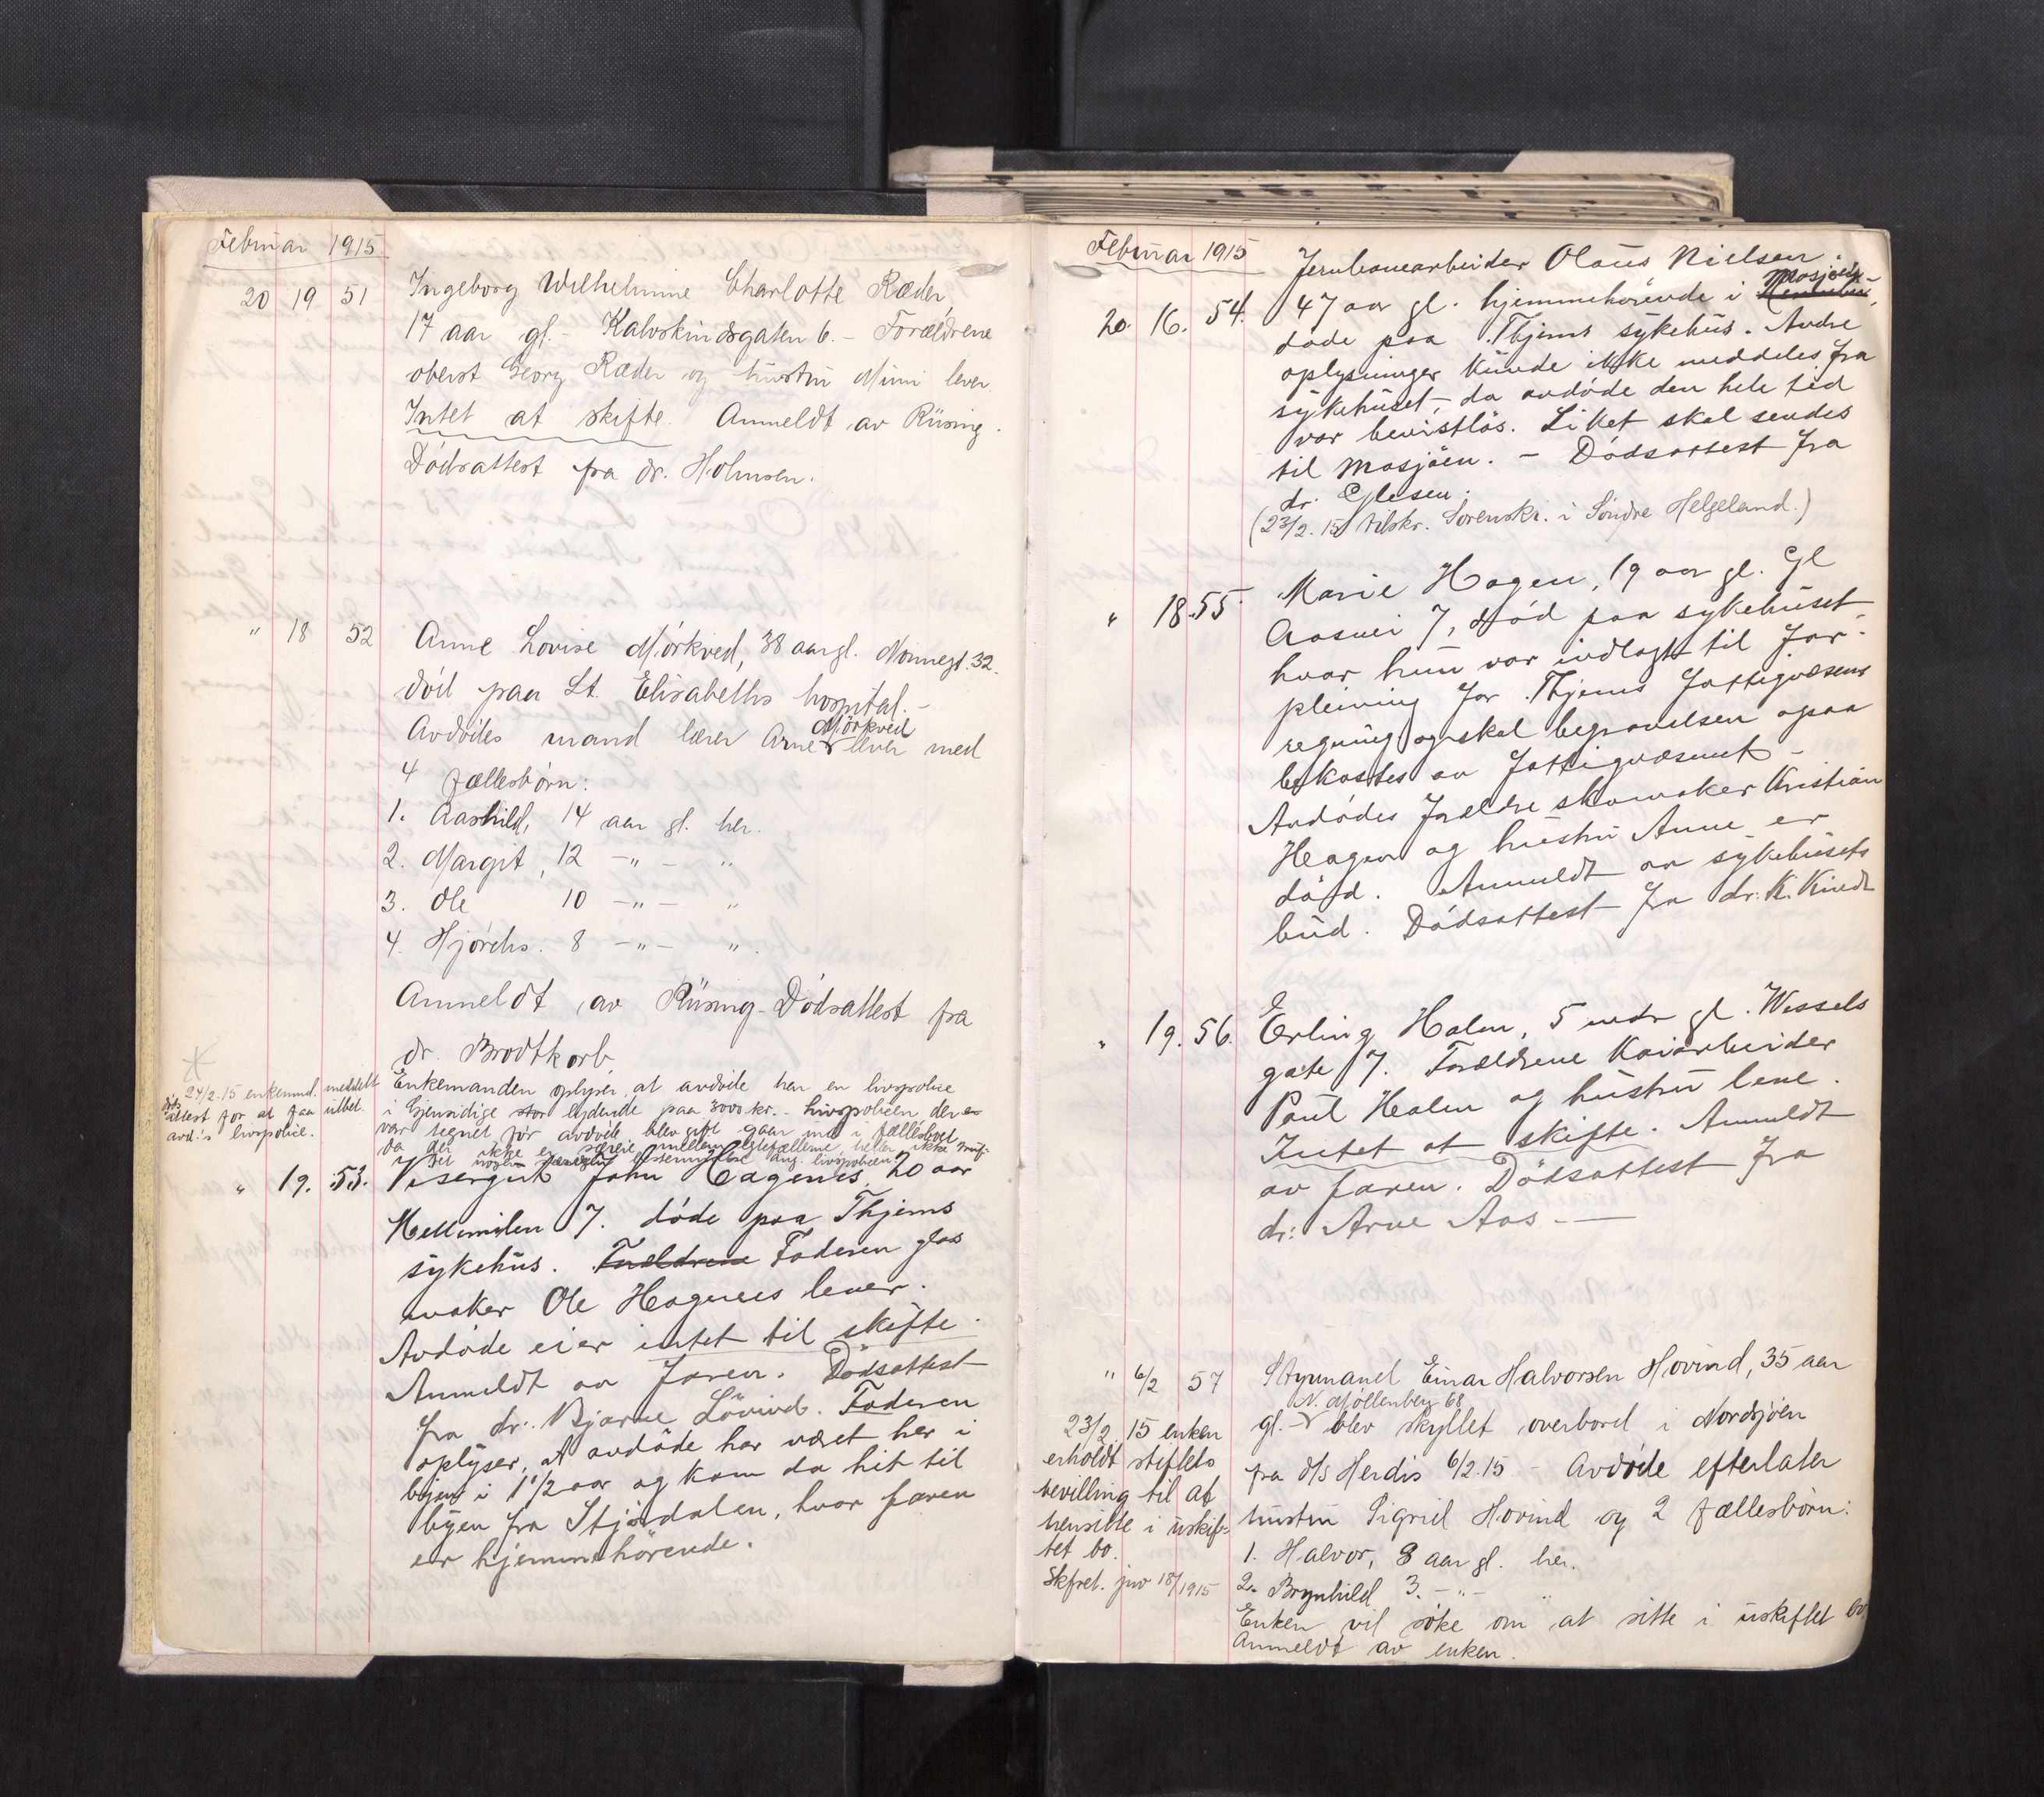 Februar 1915
20 19 51 Ingeborg Wilhelmine Charlotte Ræder,
17 aar gl. - Kalvskindsgaten 6. - Forældrene
oberst Georg Ræder og hustru Mimi lever.
Intet at skifte. Anmeldt av Rüsing.
Dödsattest fra dr. Holmsen.
" 18 52 Anne Lovise Mörkved, 38 aar gl. Nonnegt. 32.
död paa St. Elisabeths hospital. -
Mörkved
Avdödes mand lærer Arne lever med
4 fællesbörn:
1. Aashild, 14 aar gl. her.
2. Margit, 12 -"- "
3. Ole 10 -"- "
4. Hjördis. 8 -"- ".
Anmeldt av Rüsing - Dödsattest fra
dr. Brodtkorb.
24/2.15 enkemd. meddelt
attest for at faa utbet.
avd.'s livspolice.
Enkemanden oplyser, at avdöde har en livspolice
i Gjensidige stor lydende paa 3000 kr. - livspolicen der
var tegnet för avdöde blev gift gaar ind i fællesboet
da der ikke er særeie mellem egtefællerne, heller ikke
nogen bestemmelse ang. livspolicen
" 19. 53. Visergut John Hagenes, 20 aar
Mellemilen 7. döde paa Thjems
sykehus. Forældrene Faderen glas
maker Ole Hagenes lever.
Avdöde eier intet til skifte.
Anmeldt av faren. Dödsattest
fra dr. Bjarne Lövind. Faderen
oplyser, at avdöde har været her i
byen i 1 1/2 aar og kom da hit til
byen fra Stjördalen, hvor faren
er hjemmehörende.
Februar 1915
20. 16. 54. Jernbanearbeider Olaus Nielsen.
Mosjöen
47 aar gl. hjemmehörende i
döde paa Thjems sykehus. Andre
oplysninger kunde ikke meddeles fra
sykehuset, da avdöde den hele tid
var bevistlös. Liket skal sendes
til Mosjöen. - Dödsattest fra
dr. Eglesen.
(23/2.15 tilskr. Sorenskr. i Söndre Helgeland.)
" 18. 55. Marie Hagen, 19 aar gl. Gl
Aasvei 7, död paa sykehuset
hvor hun var indlagt til for-
pleining for Thjems fattigvæsens
regning og skal begravelsen ogsaa
bekostes av fattigvæsenet -
Avdödes forældre skomaker Kristian
Hagen og hustru Anne er
död. Anmeldt av sykehusets
bud. Dödsattest fra dr. K. Kindt
" 19. 56. Erling Halm, 5 mdr gl. Wessels
gate 7. Forældrene Kaiarbeider
Paul Halm og hustru leve.
Intet at skifte. Anmeldt
av faren. Dödsattest fra
dr: Arne Aas. -
" 6/2 57 Styrmand Einar Halvorsen Hovind, 35 aar
N. Möllenberg 68
gl. - blev skyllet overbord i Nordsjöen
fra d/s Herdis 6/2.15 - Avdöde efterlater
hustru Sigrid Hovind og 2 fællesbörn:
1. Halvor, 8 aar gl. her.
2. Brynhild 3. -"- "
Enken vil söke om at sitte i uskiftet bo.
Anmeldt av enken.
23/2.15 enken
erholdt stiftets
bevilling til at
hensitte i uskif-
tet bo.
Skfret. 1915